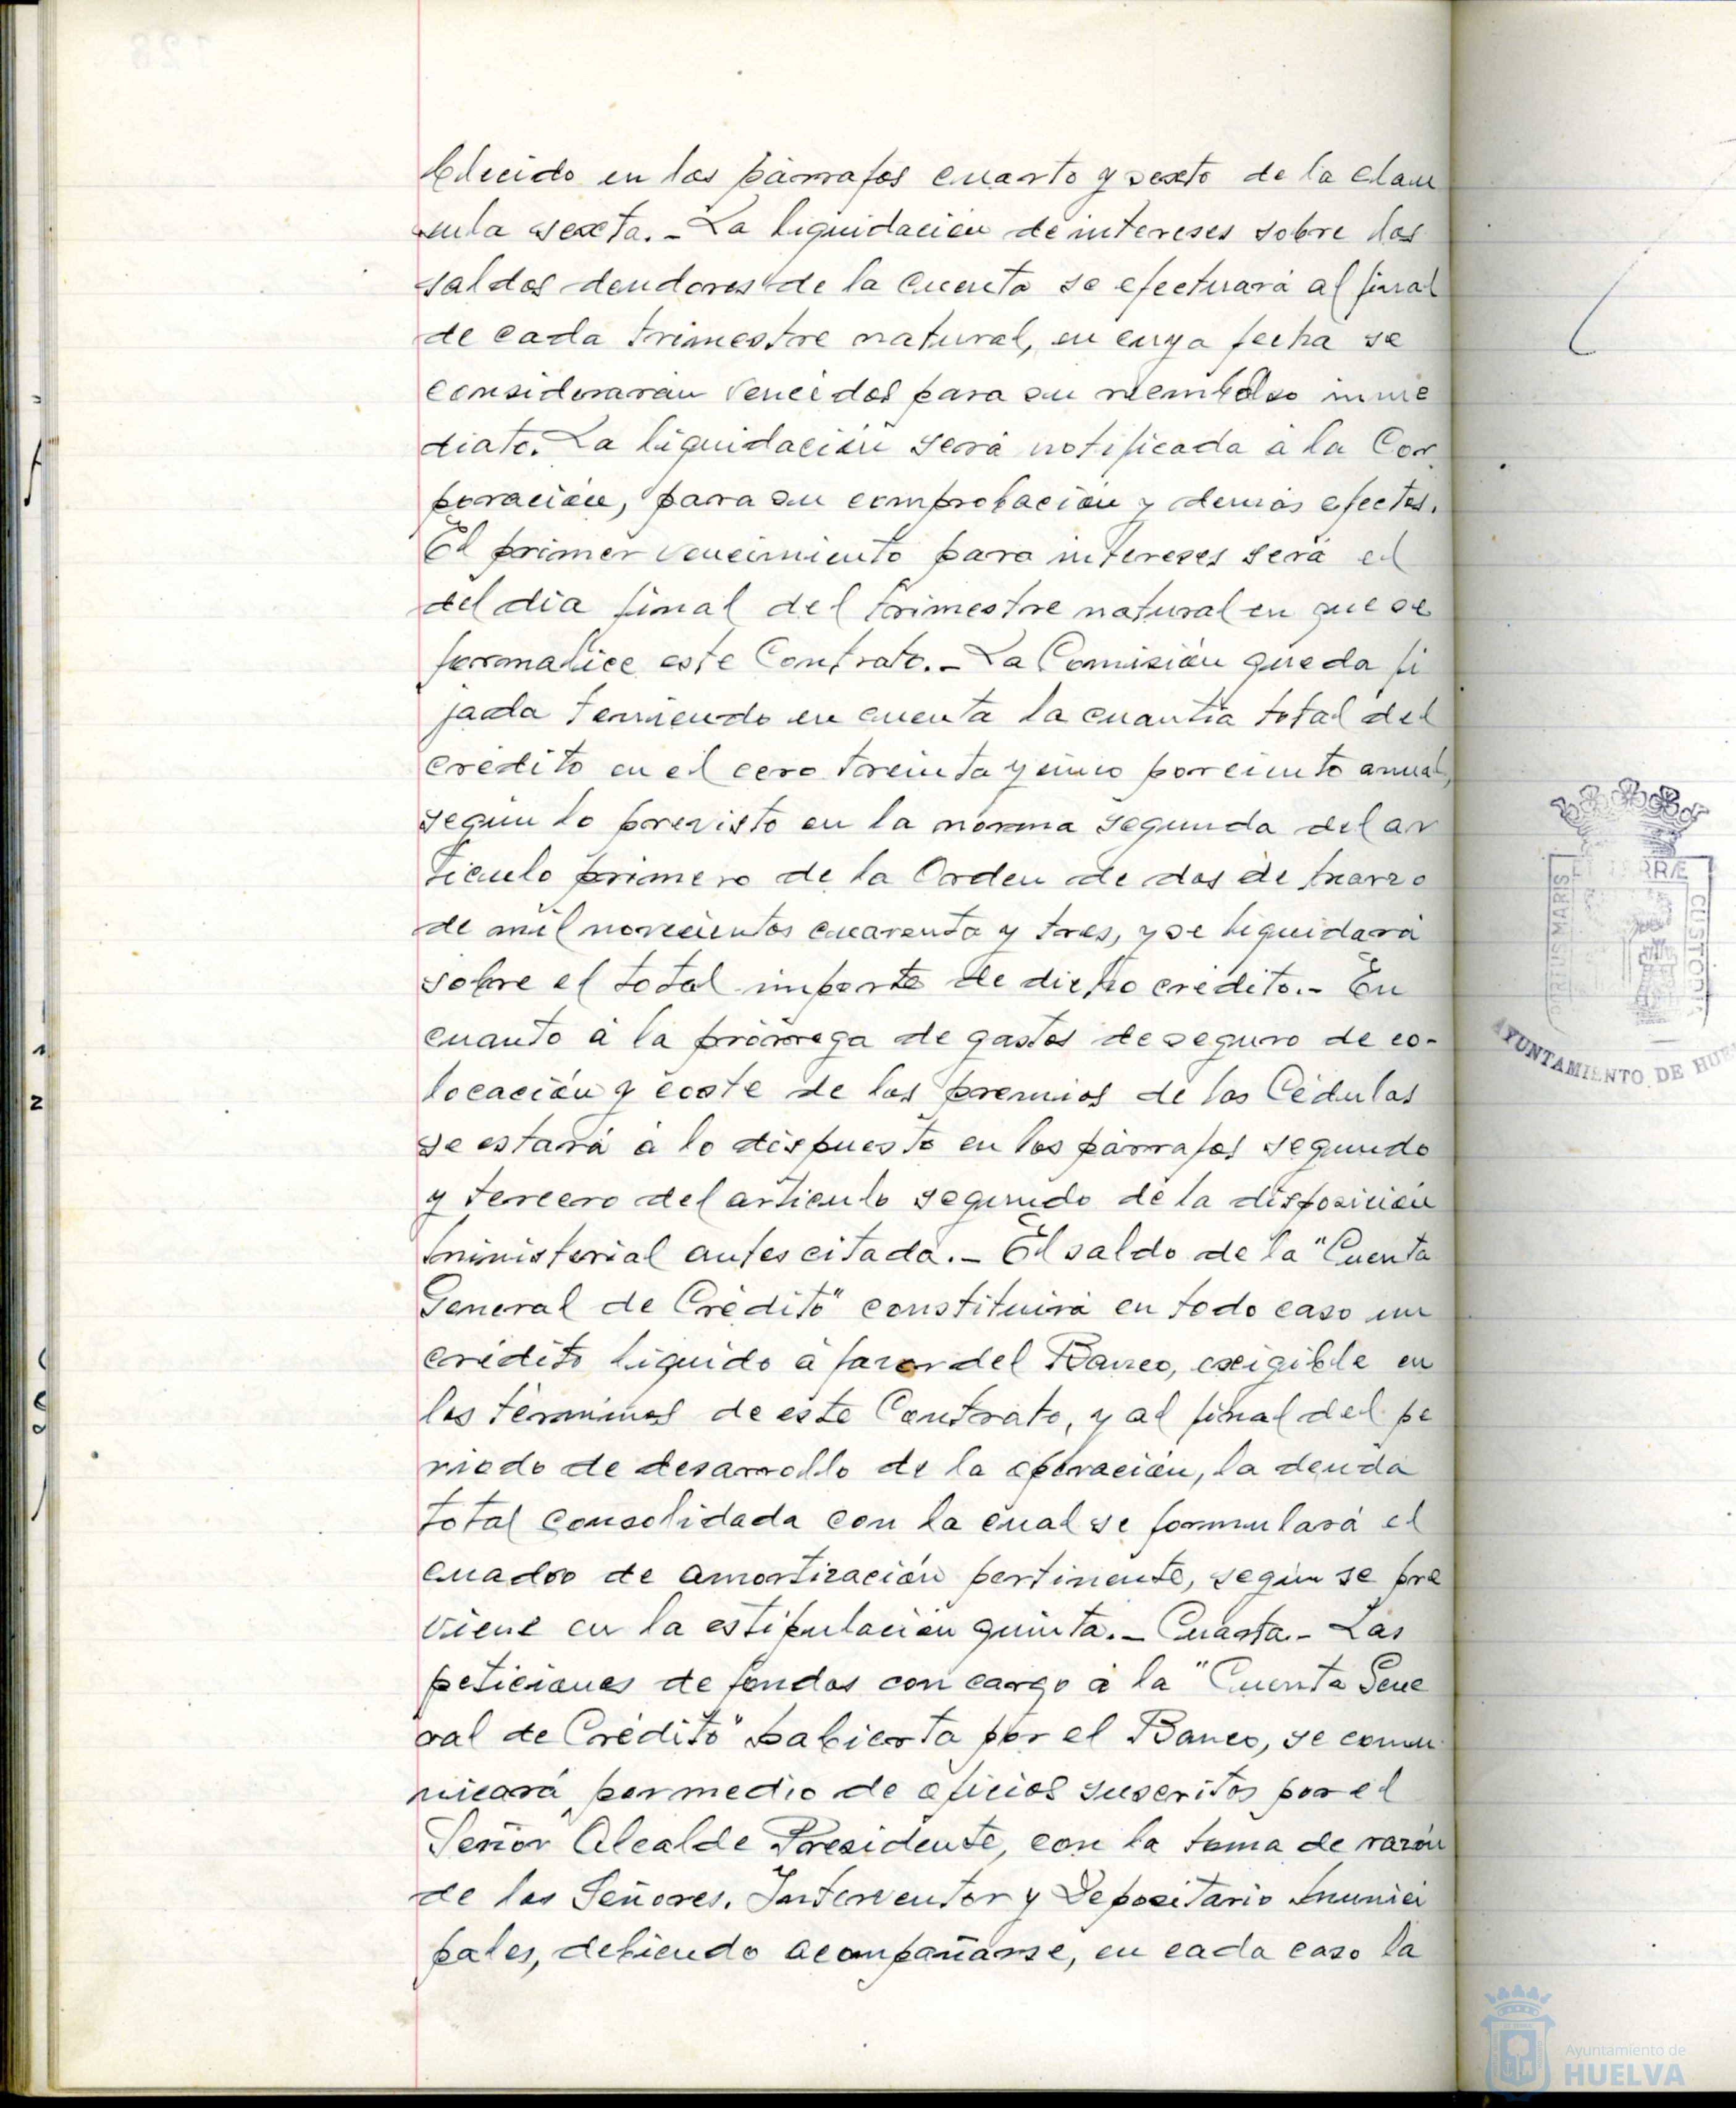 blecido en los párrafos cuarto y sexto de la clau
sula sexta.- La liquidación de intereses sobre los
saldos deudores de la cuenta se efectuará al final
de cada trimestre natural, en cuya fecha se
considerarán vencidos para su reembolso inme
diato. La liquidación será notificada á la Cor
poración, para su comprobación y demás efectos.
El primer vencimiento para intereses será el
del dia final del trimestre natural en que se
formalice este Contrato.- La Comisión queda fi
jada teniendo en cuenta la cuantía total del
crédito en el cero treinta y cinco por ciento anual,
según lo previsto en la norma segunda del ar
tículo primero de la Orden de dos de marzo
de mil novecientos cuarenta y tres, y se liquidará
sobre el total importe de dicho crédito.- En
cuanto á la prórroga de gastos de seguro de co-
locación y coste de los premios de las Cédulas
se estará á lo dispuesto en los párrafos segundo
y tercero del artículo segundo de la disposición
ministerial antes citada.- El saldo de la "Cuenta
General de Crédito" constituirá en todo caso un
crédito líquido á favor del Banco, exigible en
los términos de este Contrato, y al final del pe
riodo de desarrollo de la operación, la deuda
total consolidada con la cual se formulará el
cuadro de amortización pertinente, según se pre
viene en la estipulación quinta.- Cuarta.- Las
peticiones de fondos con cargo á la "Cuenta Gene
ral de Crédito" abierta por el Banco, se comu
nicará por medio de oficios suscritos por el
Señor Alcalde Presidente, con la toma de razón
de los Señores. Interventor y Depositario munici
pales, debiendo acompañarse, en cada caso la
PORTUS MARIS ET TERRÆ CUSTODIA
AYUNTAMIENTO DE HUE
Ayuntamiento de
HUELVA